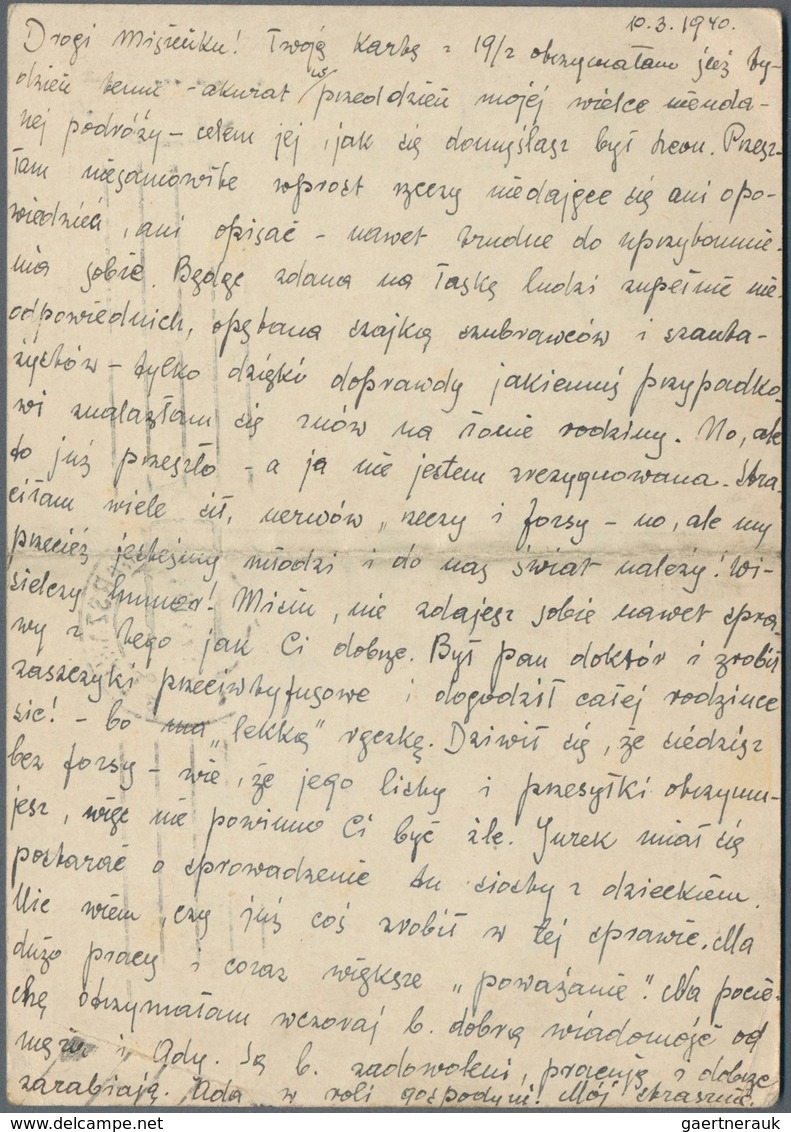 10.3.1940.
Drogi Misieńku! Twoją kartę z 19/2 otrzymałam już ty-
dzień temu - akurat w przeddzień mojej wielce nieuda-
nej podróży - celem jej, jak się domyślasz był Lwów. Przesz-
łam niesamowite wprost rzeczy niedające się ani opo-
wiedzieć, ani opisać - nawet trudne do uprzytomnie-
nia sobie. Będąc zdana na łaskę ludzi zupełnie nie-
odpowiednich, opętana szajką szubrawców i szanta-
żystów - tylko dzięki doprawdy jakiemuś przypadko-
wi znalazłam się znów na łonie rodziny. No, ale
to już przeszło - a ja nie jestem zrezygnowana. Stra-
ciłam wiele sił, nerwów, rzeczy i forsy - no, ale my
przecież jesteśmy młodzi i do nas świat należy! Wi-
sielczy humor! Misiu, nie zdajesz sobie nawet spra-
wy z tego jak Ci dobrze. Był pan doktór i zrobił
zaszczyki przeciwtyfusowe i dogodził całej rodzince
sic! - bo ma „lekką” rączkę. Dziwił się, że siedzisz
bez forsy - wie, że jego listy i przesyłki otrzymu-
jesz, więc nie powinno Ci być źle. Jurek miał się
postarać o sprowadzenie tu ciochy z dzieckiem.
Nie wiem, czy już coś zrobił w tej sprawie. Ma
dużo pracy i coraz większe „poważanie”. Na pocie-
chę otrzymałam wczoraj b. dobrą wiadomość od
męża i Ady. Są b. zadowoleni, pracują i dobrze
zarabiają. Ada w roli gospodyni! Mój strasznie